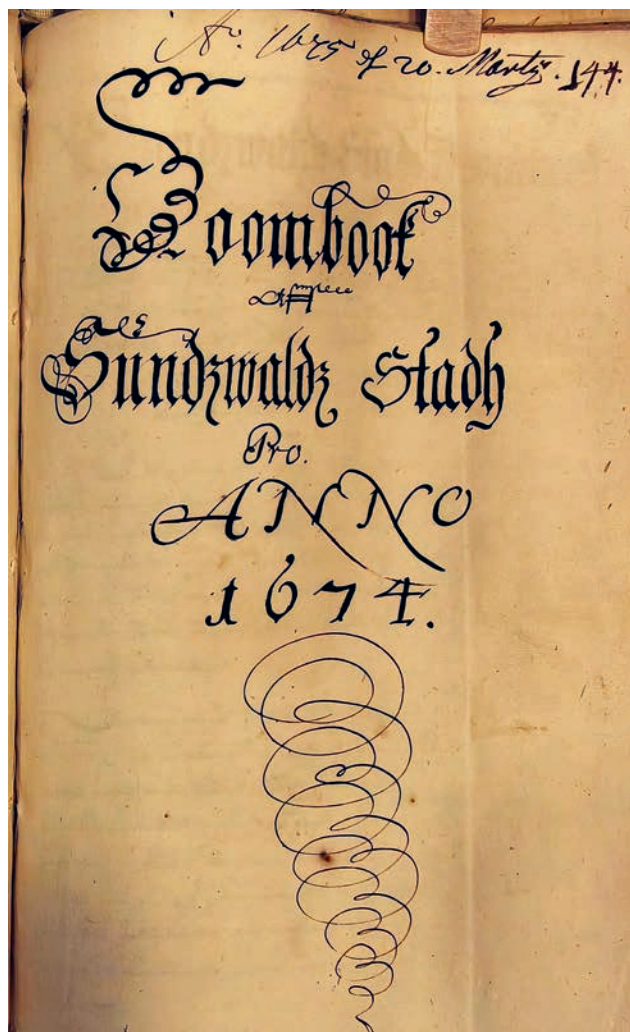 Ao. 1675 d 20. Martij. 144.
Doombook
aff
Sundzwaldz Stadh
Pro.
ANNO
1674.